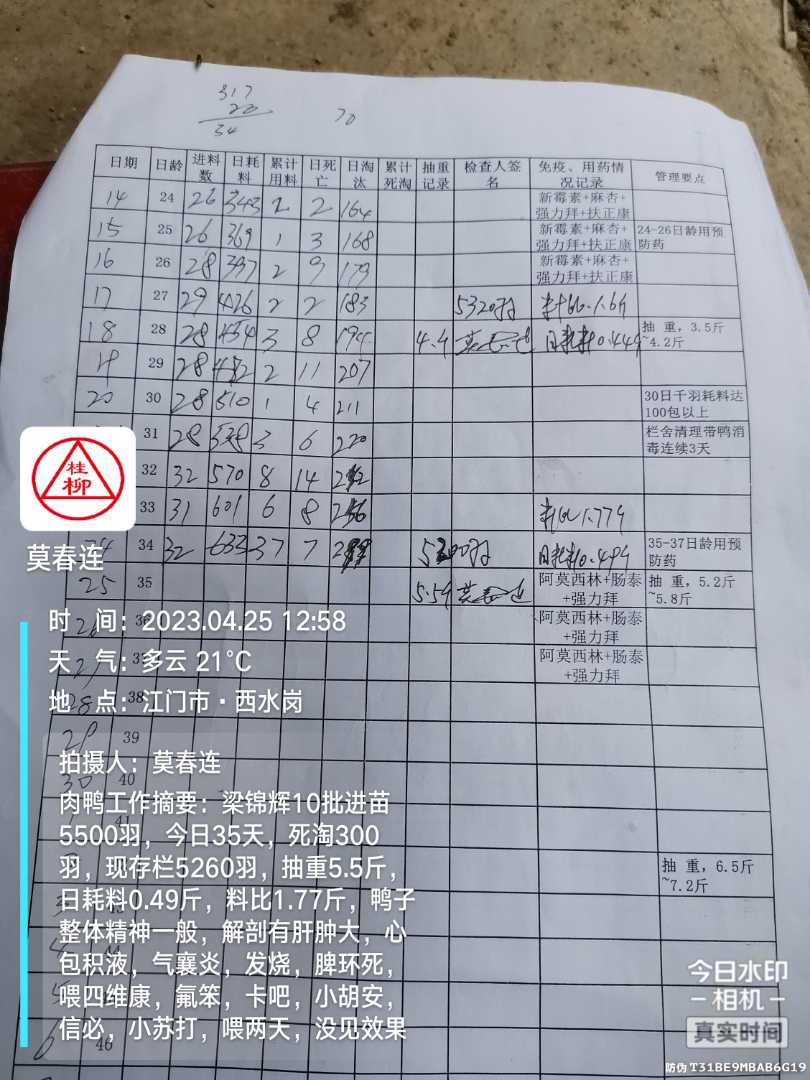 317
20
34
70
日期 日龄 进料数 日耗料 累计用料 日死亡 日淘汰 累计死淘 抽重记录 检查人签名 免疫、用药情况记录 管理要点
14 24 26 343 2 2 164 新霉素+麻杏+强力拜+扶正康
15 25 26 369 1 3 168 新霉素+麻杏+强力拜+扶正康 24-26日龄用预防药
16 26 28 397 2 9 179 新霉素+麻杏+强力拜+扶正康
17 27 29 426 2 2 183 5320羽 料比1.6斤
18 28 28 454 3 8 194 4.4 莫春连 日耗料0.44斤 抽重，3.5斤~4.2斤
19 29 28 482 2 11 207
20 30 28 510 1 4 211 30日千羽耗料达100包以上
31 28 538 3 6 220 栏舍清理带鸭消毒连续3天
32 32 570 8 14
33 31 601 6 8 料比1.77斤
24 34 32 633 37 7 5300羽 日耗料0.49斤 35-37日龄用预防药
25 35 5.5斤 莫春连 阿莫西林+肠泰+强力拜 抽重，5.2斤~5.8斤
26 36 阿莫西林+肠泰+强力拜
27 37 阿莫西林+肠泰+强力拜
28 38
29 39
30 40
抽重，6.5斤~7.2斤
5
6 46
桂柳
莫春连
时 间：2023.04.25 12:58
天 气：多云 21℃
地 点：江门市·西水岗
拍摄人：莫春连
肉鸭工作摘要：梁锦辉10批进苗
5500羽，今日35天，死淘300
羽，现存栏5260羽，抽重5.5斤，
日耗料0.49斤，料比1.77斤，鸭子
整体精神一般，解剖有肝肿大，心
包积液，气襄炎，发烧，脾环死，
喂四维康，氟笨，卡吧，小胡安，
信必，小苏打，喂两天，没见效果
今日水印
-相机-
真实时间
防伪 T31BE9MBAB6G19